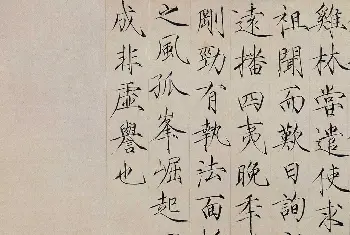 雞林嘗遣使求
祖聞而歎曰詢
遠播四夷晚秊
剛勁有執法面折
之風孤峯崛起
成非虛譽也